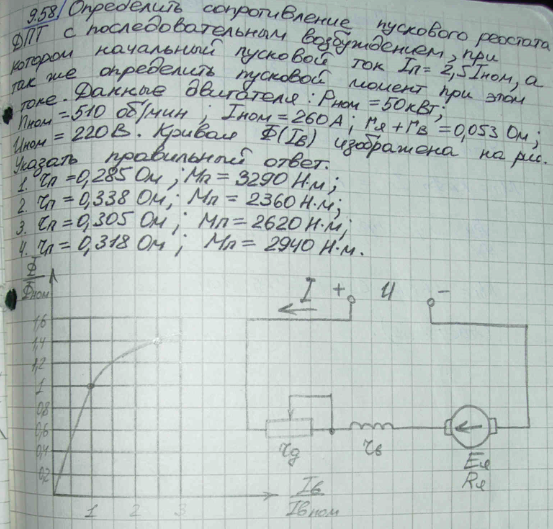 9.58/ Определить сопротивление пускового реостата
ДПТ с последовательным возбуждением, при
котором начальный пусковой ток Iп = 2,5 Iном, а
так же определить пусковой момент при этом
токе. Данные двигателя: Pном = 50 кВт;
nном = 510 об/мин, Iном = 260 А; rя + rв = 0,053 Ом;
Uном = 220 В. Кривая Ф(Iв) изображена на рис.
Указать правильный ответ.
1. rп = 0,285 Ом; Mп = 3290 Н·м;
2. rп = 0,338 Ом, Mп = 2360 Н·м;
3. rп = 0,305 Ом, Mп = 2620 Н·м;
4. rп = 0,318 Ом; Mп = 2940 Н·м.
Ф
Фном
1,6
1,4
1,2
1
0,8
0,6
0,4
0,2
1 2 3
Iв
Iвном
I + U −
rд
rв
Eя
Rя